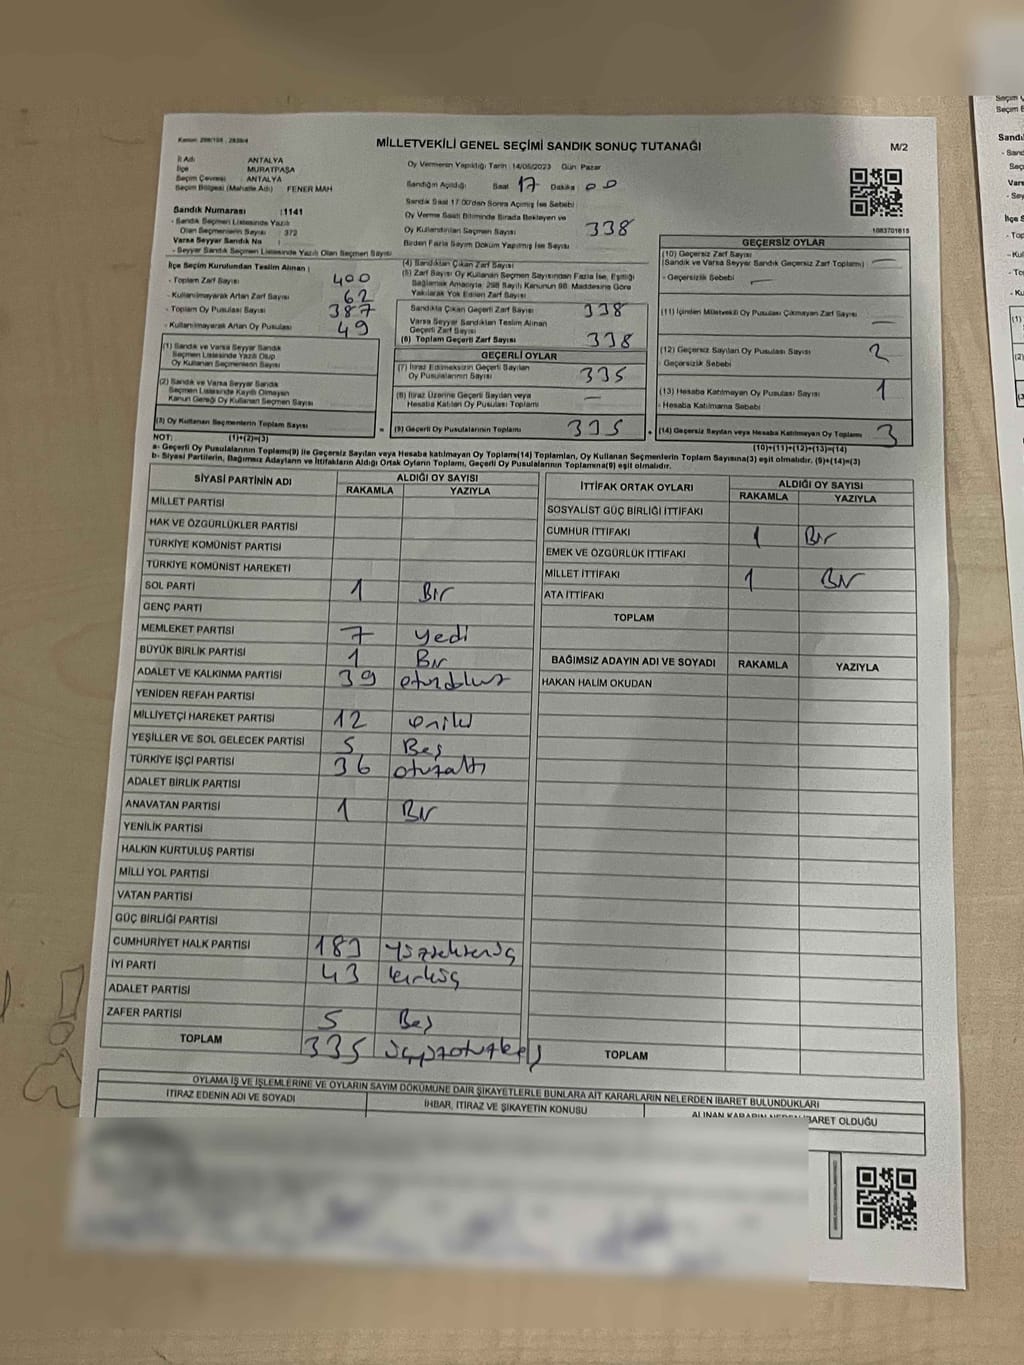 Kanun: 298/105 , 2839/4
MİLLETVEKİLİ GENEL SEÇİMİ SANDIK SONUÇ TUTANAĞI
M/2
İl Adı ANTALYA
İlçe MURATPAŞA
Seçim Çevresi ANTALYA
Seçim Bölgesi (Mahalle Adı) FENER MAH
Sandık Numarası :1141
- Sandık Seçmen Listesinde Yazılı
Olan Seçmenlerin Sayısı : 372
Varsa Seyyar Sandık No :
- Seyyar Sandık Seçmen Listesinde Yazılı Olan Seçmen Sayısı
İlçe Seçim Kurulundan Teslim Alınan :
- Toplam Zarf Sayısı 400
- Kullanılmayarak Artan Zarf Sayısı 62
- Toplam Oy Pusulası Sayısı 387
- Kullanılmayarak Artan Oy Pusulası 49
(1) Sandık ve Varsa Seyyar Sandık
Seçmen Listesinde Yazılı Olup
Oy Kullanan Seçmenlerin Sayısı
(2) Sandık ve Varsa Seyyar Sandık
Seçmen Listesinde Kayıtlı Olmayan
Kanun Gereği Oy Kullanan Seçmen Sayısı
(3) Oy Kullanan Seçmenlerin Toplam Sayısı
Oy Vermenin Yapıldığı Tarih :14/05/2023 Gün: Pazar
Sandığın Açıldığı Saat 17 Dakika 00
Sandık Saat 17:00'den Sonra Açılmış İse Sebebi
Oy Verme Saati Bitiminde Sırada Bekleyen ve
Oy Kullandırılan Seçmen Sayısı 338
Birden Fazla Sayım Döküm Yapılmış İse Sayısı
(4) Sandıktan Çıkan Zarf Sayısı
(5) Zarf Sayısı Oy Kullanan Seçmen Sayısından Fazla İse, Eşitliği
Sağlamak Amacıyla, 298 Sayılı Kanunun 98. Maddesine Göre
Yakılarak Yok Edilen Zarf Sayısı
Sandıkta Çıkan Geçerli Zarf Sayısı 338
Varsa Seyyar Sandıktan Teslim Alınan
Geçerli Zarf Sayısı
(6) Toplam Geçerli Zarf Sayısı 338
GEÇERLİ OYLAR
(7) İtiraz Edilmeksizin Geçerli Sayılan
Oy Pusulalarının Sayısı 335
(8) İtiraz Üzerine Geçerli Sayılan veya
Hesaba Katılan Oy Pusulası Toplamı —
= (9) Geçerli Oy Pusulalarının Toplamı 335
1083701815
GEÇERSİZ OYLAR
(10) Geçersiz Zarf Sayısı
(Sandık ve Varsa Seyyar Sandık Geçersiz Zarf Toplamı) —
- Geçersizlik Sebebi —
(11) İçinden Milletvekili Oy Pusulası Çıkmayan Zarf Sayısı —
(12) Geçersiz Sayılan Oy Pusulası Sayısı 2
- Geçersizlik Sebebi
(13) Hesaba Katılmayan Oy Pusulası Sayısı 1
- Hesaba Katılmama Sebebi
+ (14) Geçersiz Sayılan veya Hesaba Katılmayan Oy Toplamı 3
NOT: (1)+(2)=(3) (10)+(11)+(12)+(13)=(14)
a- Geçerli Oy Pusulalarının Toplamı(9) ile Geçersiz Sayılan veya Hesaba katılmayan Oy Toplamı(14) Toplamları, Oy Kullanan Seçmenlerin Toplam Sayısına(3) eşit olmalıdır. (9)+(14)=(3)
b- Siyasi Partilerin, Bağımsız Adayların ve İttifakların Aldığı Oyların Toplamı, Geçerli Oy Pusulalarının Toplamına(9) eşit olmalıdır.
SİYASİ PARTİNİN ADI ALDIĞI OY SAYISI
RAKAMLA YAZIYLA
MİLLET PARTİSİ
HAK VE ÖZGÜRLÜKLER PARTİSİ
TÜRKİYE KOMÜNİST PARTİSİ
TÜRKİYE KOMÜNİST HAREKETİ
SOL PARTİ 1 Bir
GENÇ PARTİ
MEMLEKET PARTİSİ 7 yedi
BÜYÜK BİRLİK PARTİSİ 1 Bir
ADALET VE KALKINMA PARTİSİ 39 otuzdokuz
YENİDEN REFAH PARTİSİ
MİLLİYETÇİ HAREKET PARTİSİ 12 oniki
YEŞİLLER VE SOL GELECEK PARTİSİ 5 Beş
TÜRKİYE İŞÇİ PARTİSİ 36 otuzaltı
ADALET BİRLİK PARTİSİ
ANAVATAN PARTİSİ 1 Bir
YENİLİK PARTİSİ
HALKIN KURTULUŞ PARTİSİ
MİLLİ YOL PARTİSİ
VATAN PARTİSİ
GÜÇ BİRLİĞİ PARTİSİ
CUMHURİYET HALK PARTİSİ 183 Yüzseksenüç
İYİ PARTİ 43 kırküç
ADALET PARTİSİ
ZAFER PARTİSİ 5 Beş
TOPLAM 335 üçyüzotuzbeş
İTTİFAK ORTAK OYLARI ALDIĞI OY SAYISI
RAKAMLA YAZIYLA
SOSYALİST GÜÇ BİRLİĞİ İTTİFAKI
CUMHUR İTTİFAKI 1 Bir
EMEK VE ÖZGÜRLÜK İTTİFAKI
MİLLET İTTİFAKI 1 Bir
ATA İTTİFAKI
TOPLAM
BAĞIMSIZ ADAYIN ADI VE SOYADI RAKAMLA YAZIYLA
HAKAN HALİM OKUDAN
TOPLAM
OYLAMA İŞ VE İŞLEMLERİNE VE OYLARIN SAYIM DÖKÜMÜNE DAİR ŞİKAYETLERLE BUNLARA AİT KARARLARIN NELERDEN İBARET BULUNDUKLARI
İTİRAZ EDENİN ADI VE SOYADI İHBAR, İTİRAZ VE ŞİKAYETİN KONUSU ALINAN KARARIN NEDEN İBARET OLDUĞU